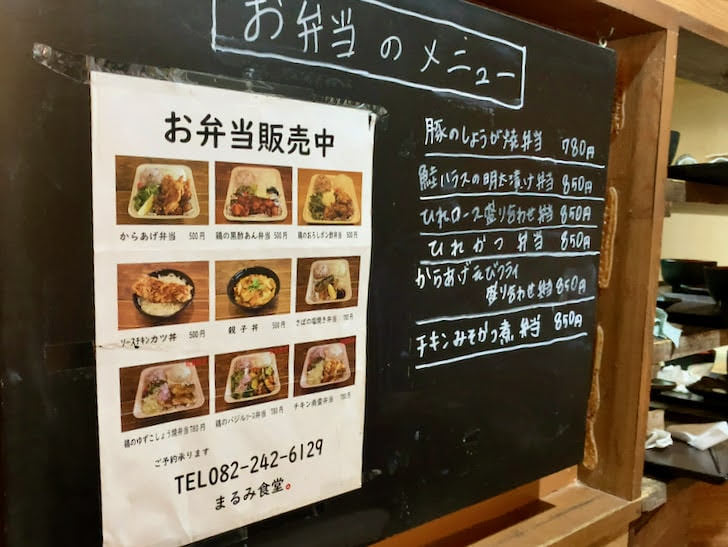 お弁当のメニュー
お弁当販売中
からあげ弁当 500円
鶏の黒酢あん弁当 500円
鶏のおろしポン酢弁当 500円
ソースチキンカツ丼 500円
親子丼 500円
さばの塩焼き弁当 780円
鶏のゆずこしょう焼弁当 780円
鶏のバジルソース弁当 780円
チキン南蛮弁当 780円
ご予約承ります
TEL082-242-6129
まるみ食堂。
豚のしょうが焼弁当 780円
鮭ハラスの明太漬け弁当 850円
ひれロース盛り合わせ弁当 850円
ひれかつ弁当 850円
からあげえびフライ
盛り合わせ弁当 850円
チキンみそかつ煮弁当 850円